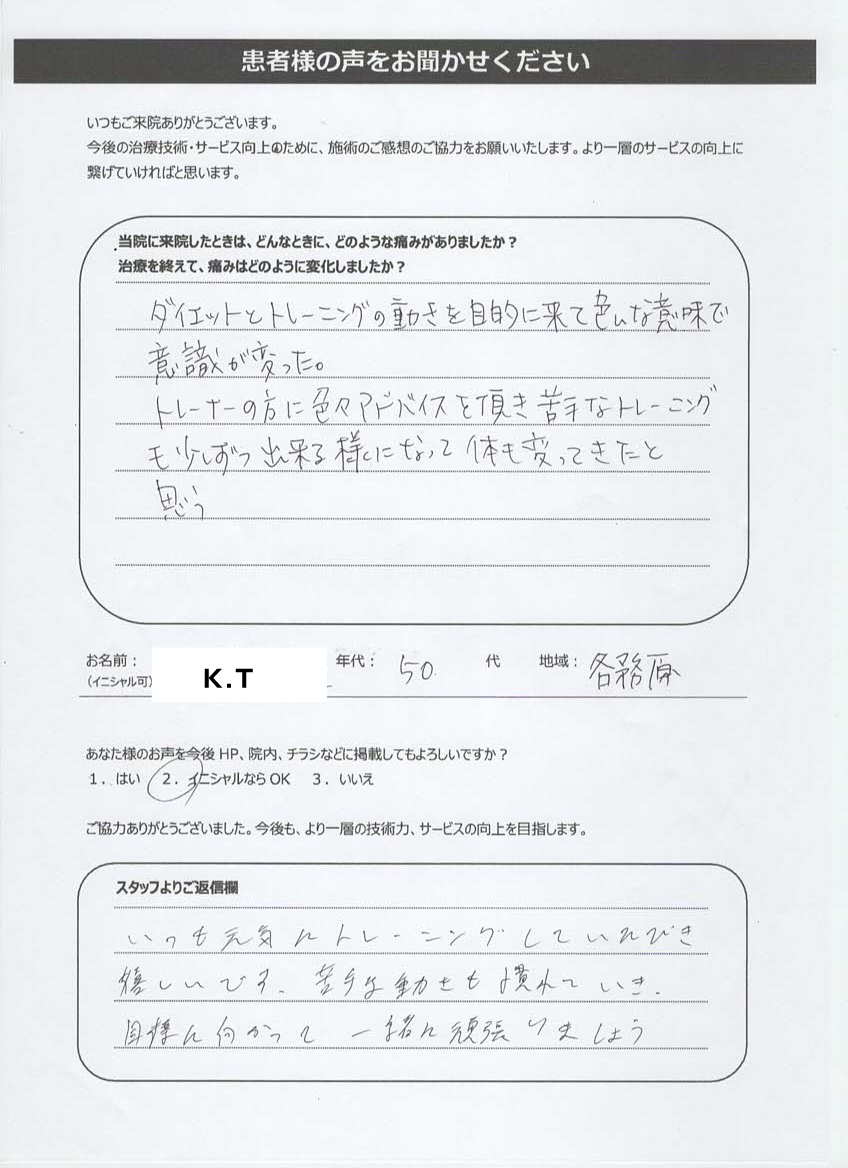 患者様の声をお聞かせください
いつもご来院ありがとうございます。
今後の治療技術・サービス向上のために、施術のご感想のご協力をお願いいたします。より一層のサービスの向上に
繋げていければと思います。
当院に来院したときは、どんなときに、どのような痛みがありましたか？
治療を終えて、痛みはどのように変化しましたか？
ダイエットとトレーニングの動きを目的に来て色んな意味で
意識が変った。
トレーナーの方に色々アドバイスを頂き苦手なトレーニング
も少しずつ出来る様になって体も変ってきたと
思う
お名前： K.T 年代： 50 代 地域： 各務原
（イニシャル可）
あなた様のお声を今後 HP、院内、チラシなどに掲載してもよろしいですか？
1．はい 2．イニシャルなら OK 3．いいえ
ご協力ありがとうございました。今後も、より一層の技術力、サービスの向上を目指します。
スタッフよりご返信欄
いつも元気にトレーニングしていただき
嬉しいです。苦手な動きも慣れていき、
目標に向かって 一緒に頑張りましょう